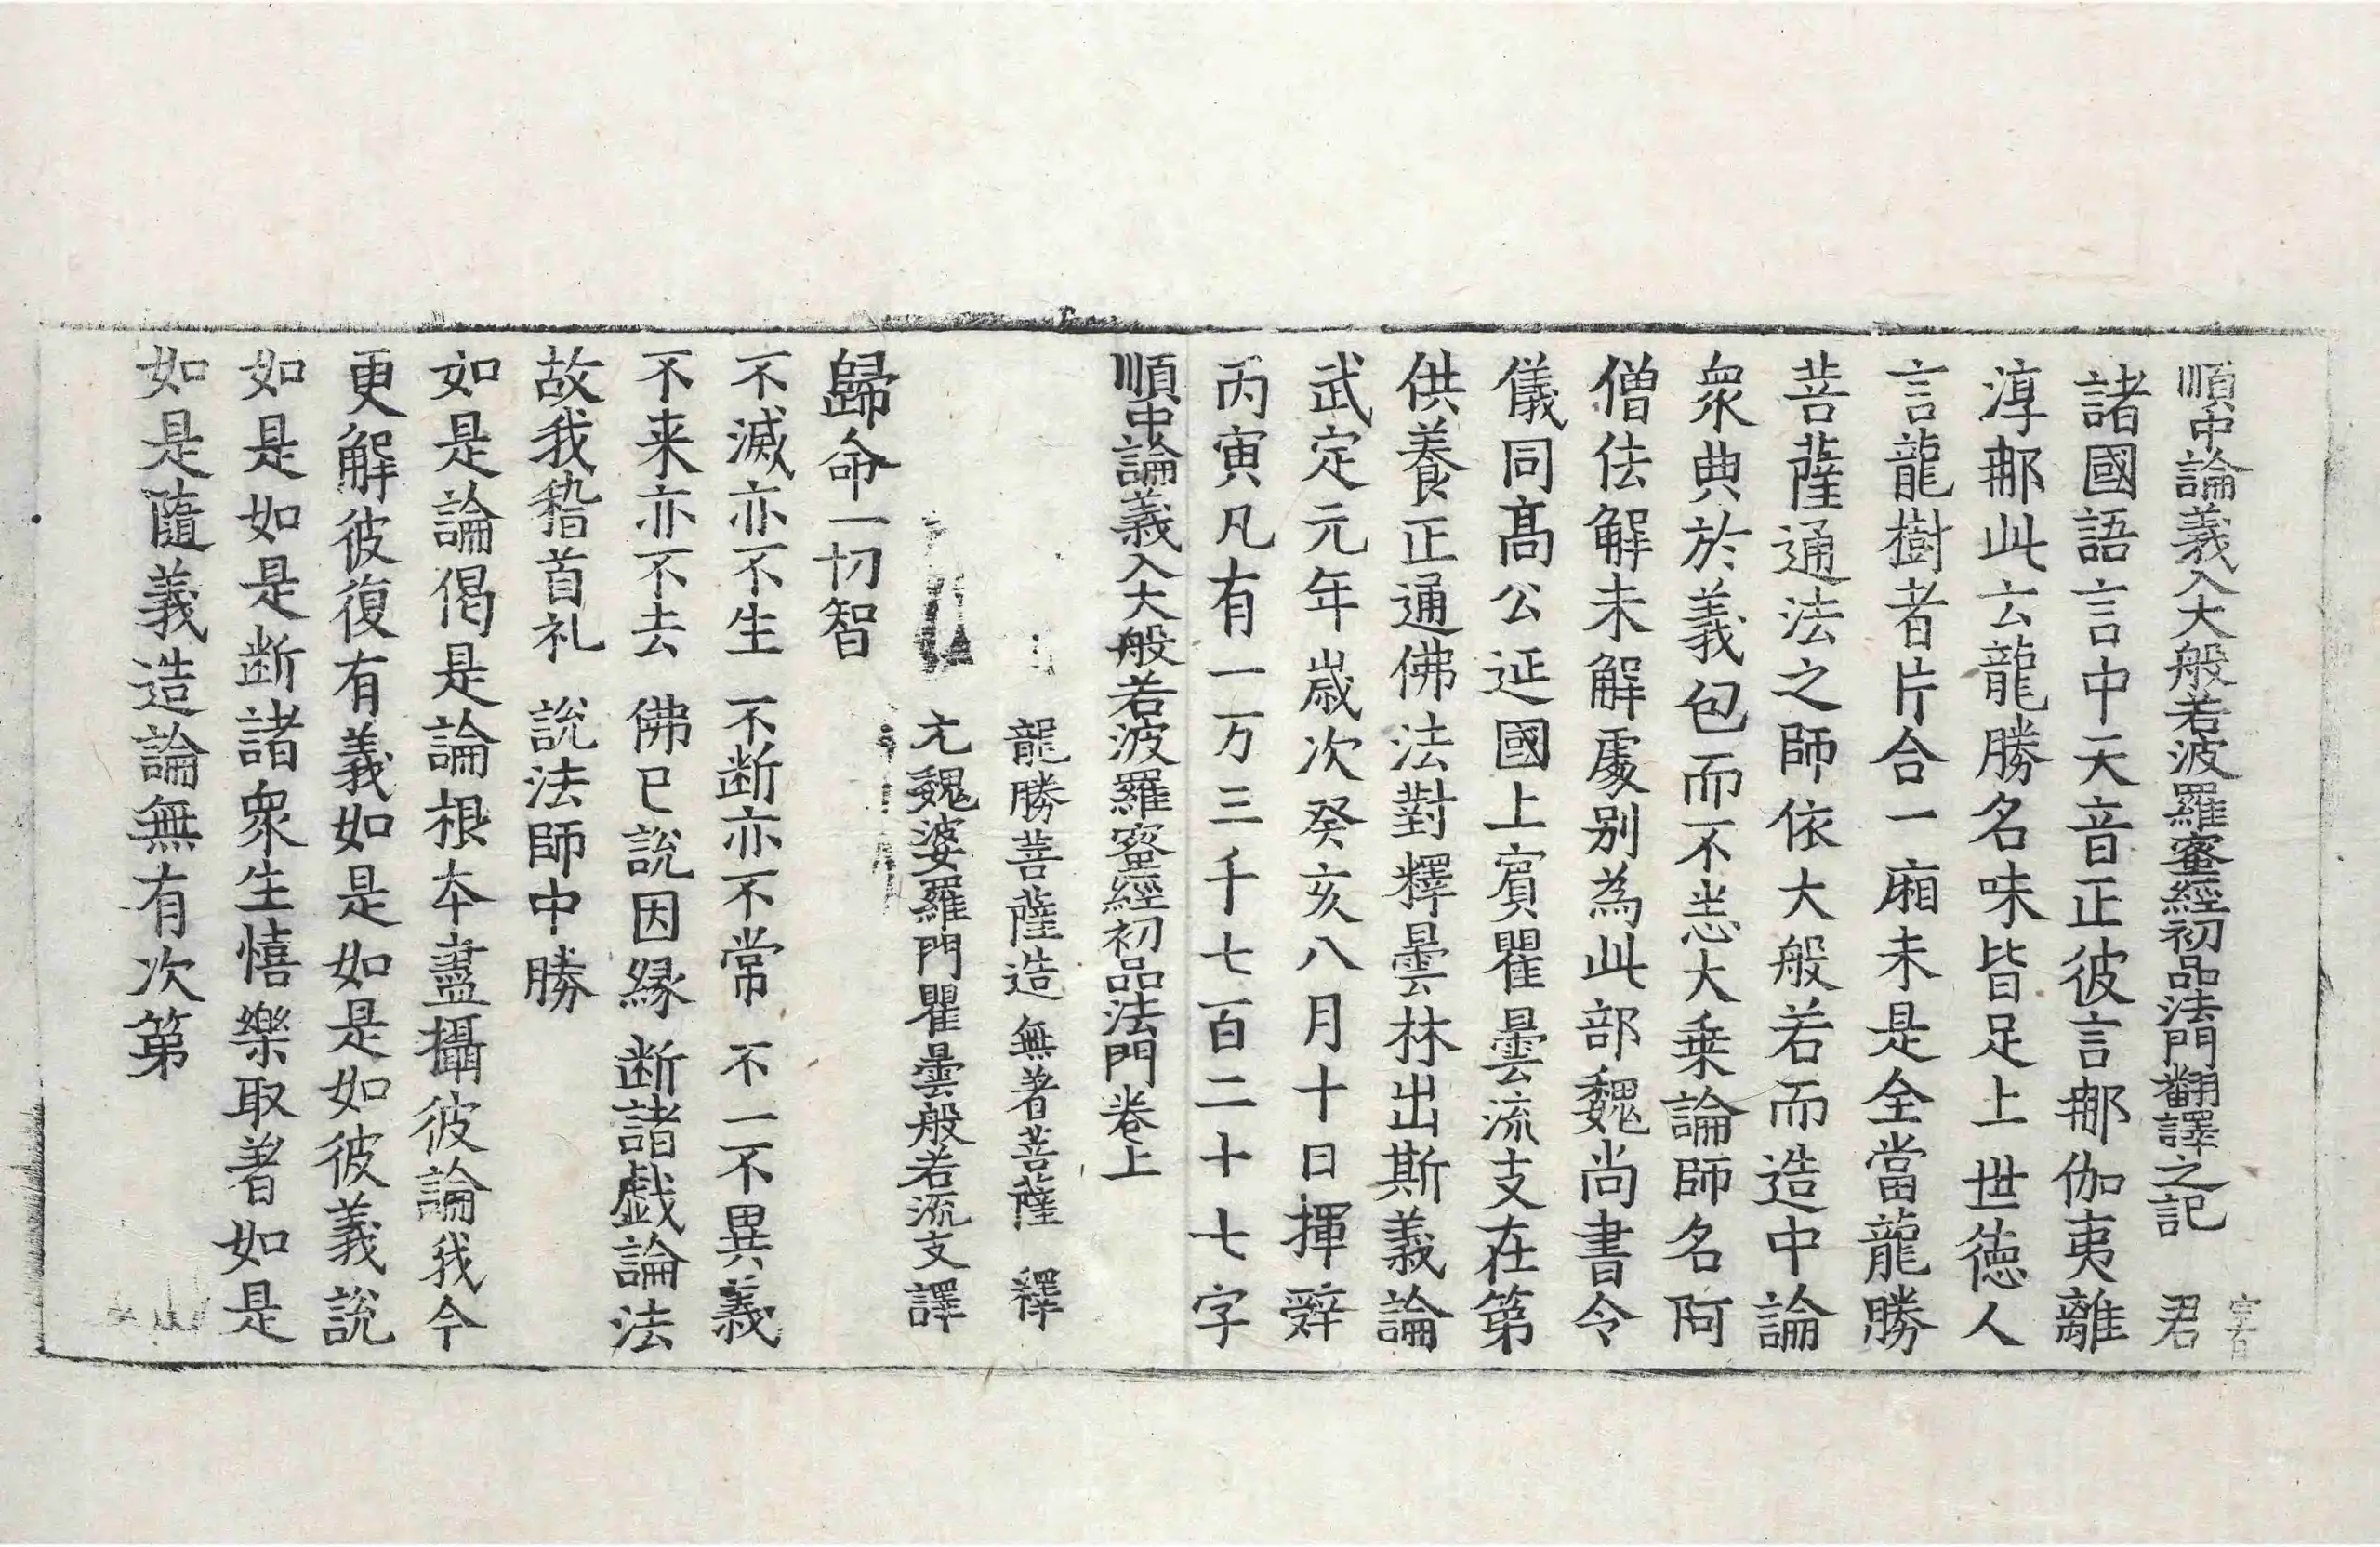 順中論義入大般若波羅蜜經初品法門翻譯之記 君
諸國語言中天音正彼言郍伽夷離
淳郍此云龍勝名味皆足上世德人
言龍樹者片合一廂未是全當龍勝
菩薩通法之師依大般若而造中論
衆典於義包而不悉大乗論師名阿
僧佉解未解處別為此部魏尚書令
儀同髙公延國上賓瞿曇流支在第
供養正通佛法對釋曇林出斯義論
武定元年歲次癸亥八月十日揮辭
丙寅凡有一万三千七百二十七字
順中論義入大般若波羅蜜經初品法門卷上
龍勝菩薩造 無著菩薩 釋
元魏婆羅門瞿曇般若流支譯
歸命一切智
不滅亦不生 不断亦不常 不一不異義
不来亦不去 佛已說因縁 断諸戯論法
故我稽首礼 說法師中勝
如是論偈是論根本盡攝彼論我今
更解彼復有義如是如是如彼義說
如是如是断諸衆生憘樂取著如是
如是隨義造論無有次第